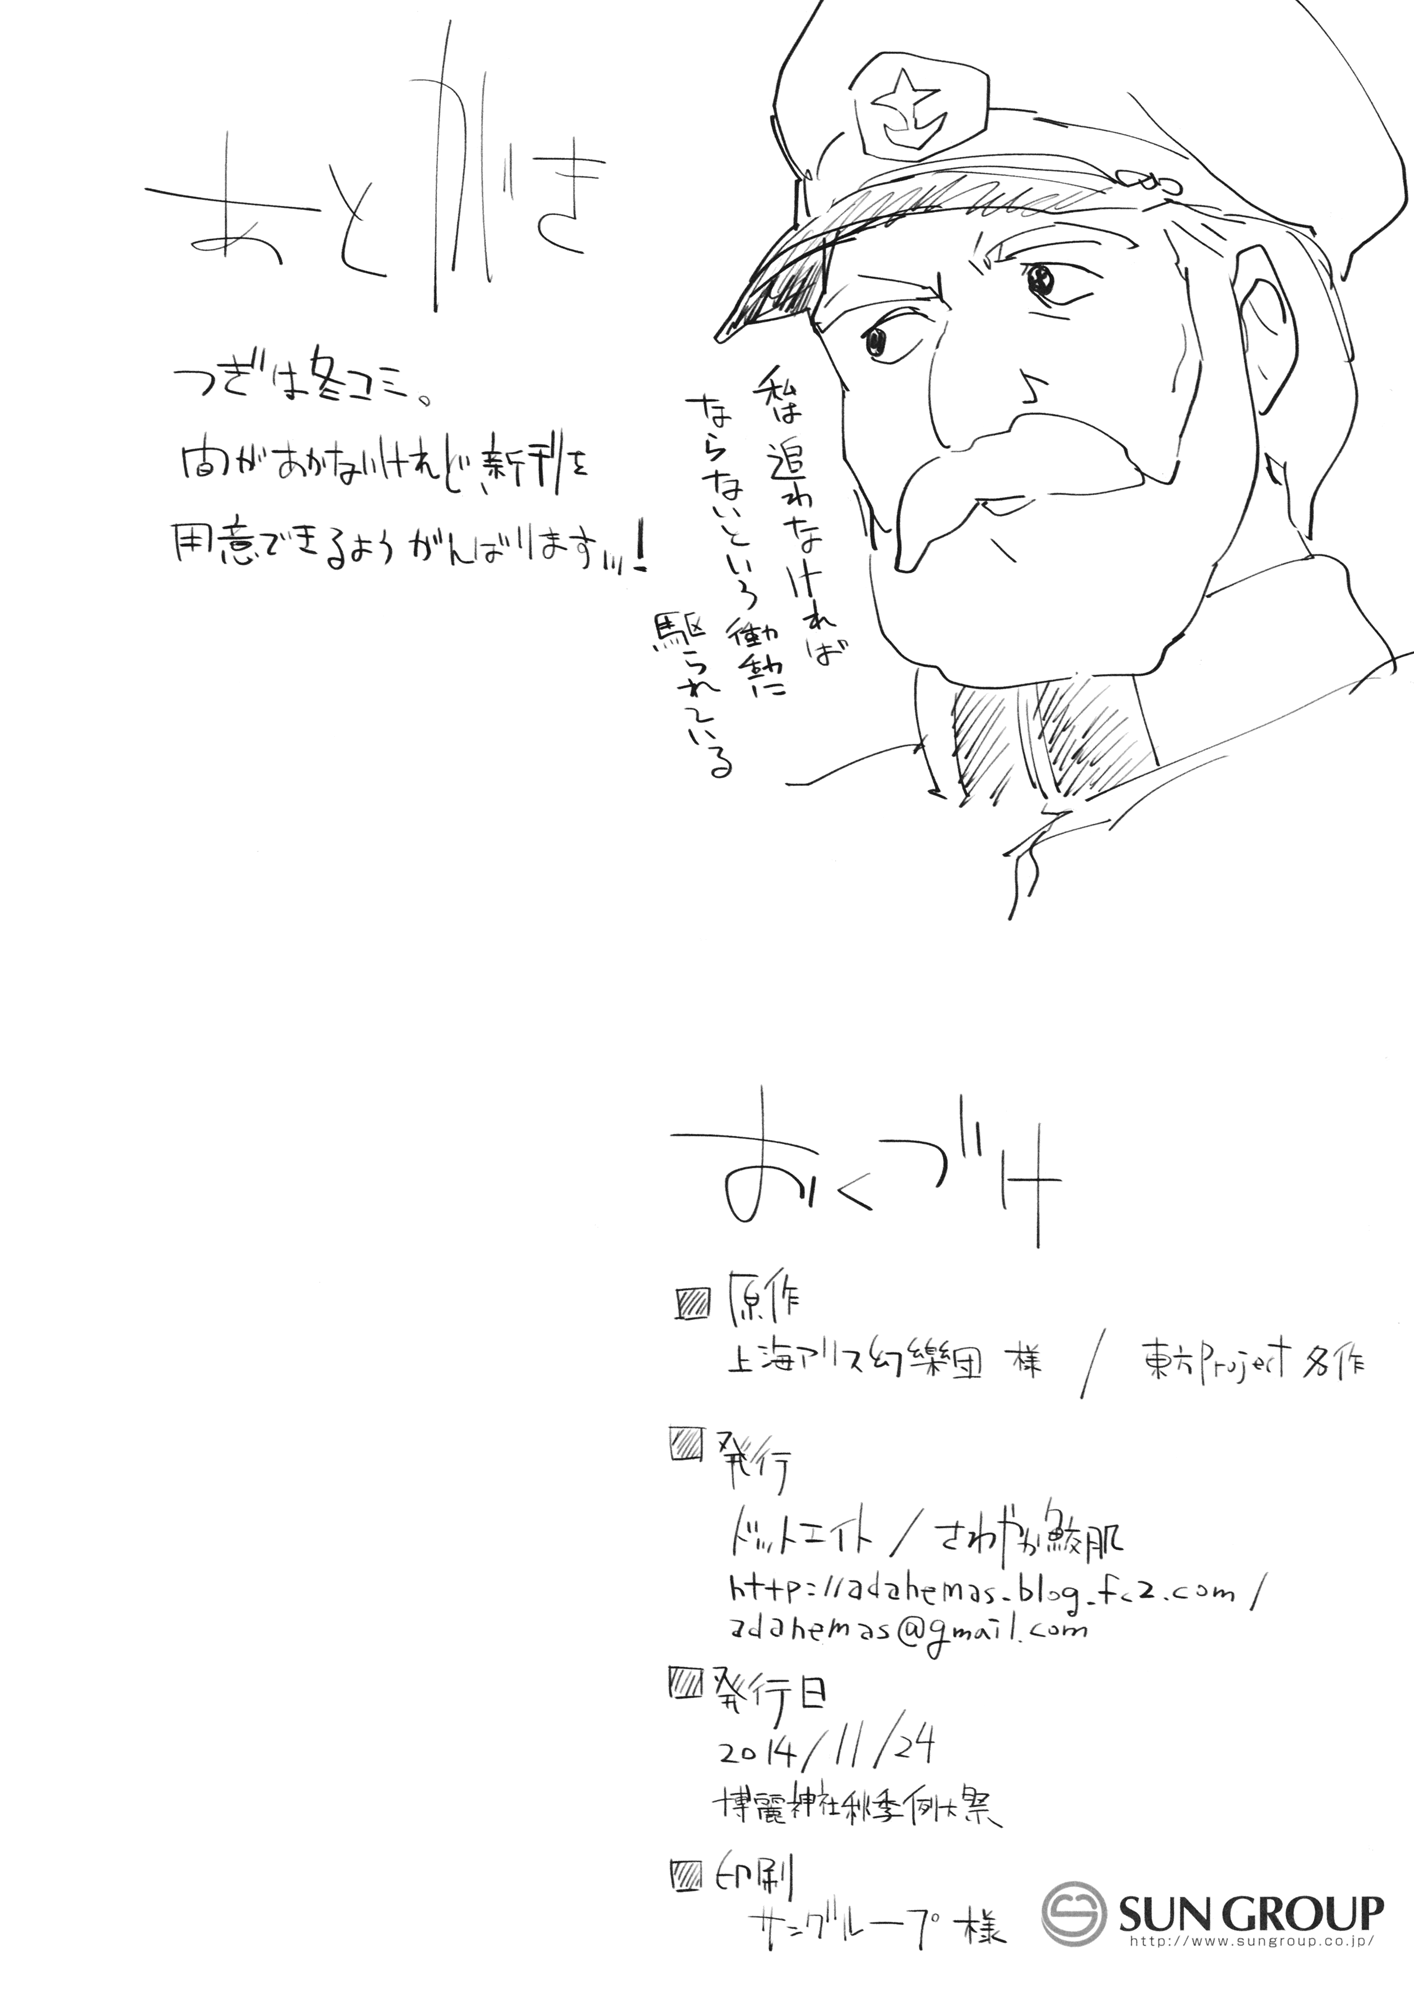 あとがき
つぎは冬コミ。
間があかないけれど新刊を
用意できるようがんばりますッ!
私は追わなければ
ならないという衝動に
駆られている
おくづけ
原作
上海アリス幻樂団 様 / 東方Project 名作
発行
ドットエイト / さわやか鮫肌
http://adahemas.blog.fc2.com/
adahemas@gmail.com
発行日
2014/11/24
博麗神社秋季例大祭
印刷
サングループ 様
SUN GROUP
http://www.sungroup.co.jp/